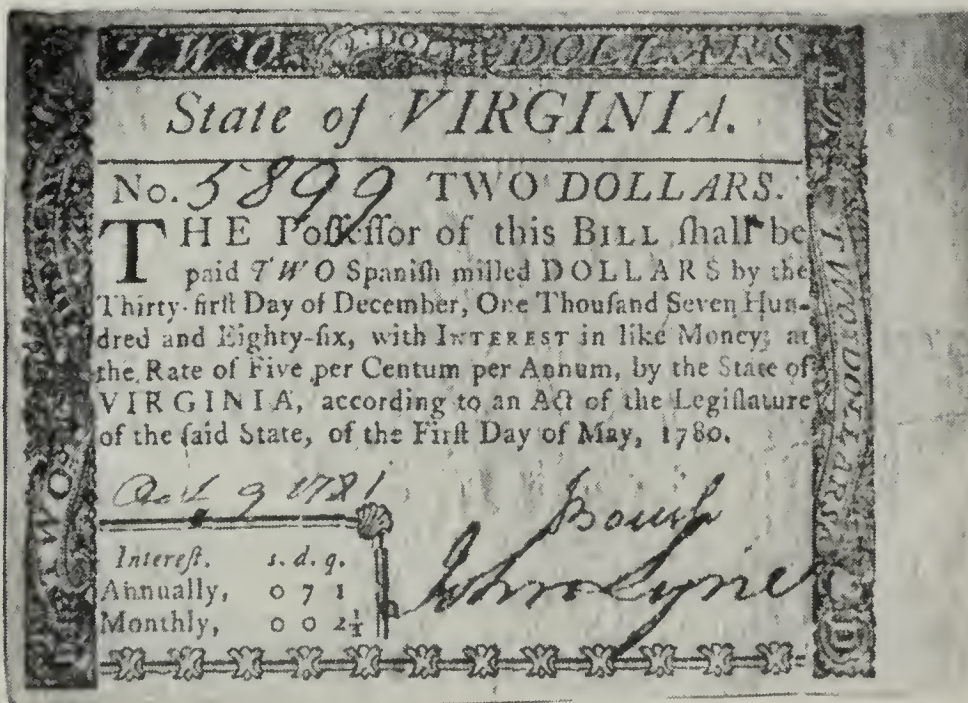 TWO DOLLARS
State of VIRGINIA.
No. 5899 TWO DOLLARS.
THE Poſſeſſor of this BILL ſhall be
paid TWO Spaniſh milled DOLLARS by the
Thirty-firſt Day of December, One Thouſand Seven Hun-
dred and Eighty-ſix, with INTEREST in like Money; at
the Rate of Five per Centum per Annum, by the State of
VIRGINIA, according to an Act of the Legiſlature
of the ſaid State, of the Firſt Day of May, 1780.
9 1781
John Lyne
Intereſt. s. d. q.
Annually, 0 7 1
Monthly, 0 0 2½
TWO DOLLARS